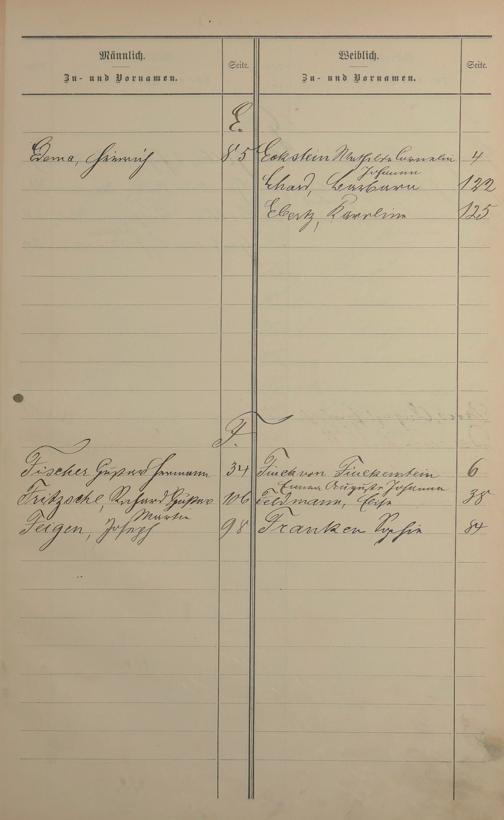 Männlich.
Zu- und Vornamen.
Seite.
Weiblich.
Zu- und Vornamen.
Seite.
E.
Edema, Hinrich 85
Eckstein Mathilde Cornelia 4
Johanna
Ehard, Barbara 122
Ebertz, Karoline 125
F.
Fischer Gustav Hermann 34
Fritzsche, Richard Gustav 106
Martin
Feigen, Joseph 98
Finck von Finckenstein 6
Emma Auguste Johanna
Feldmann, 38
Franken Sophie 84